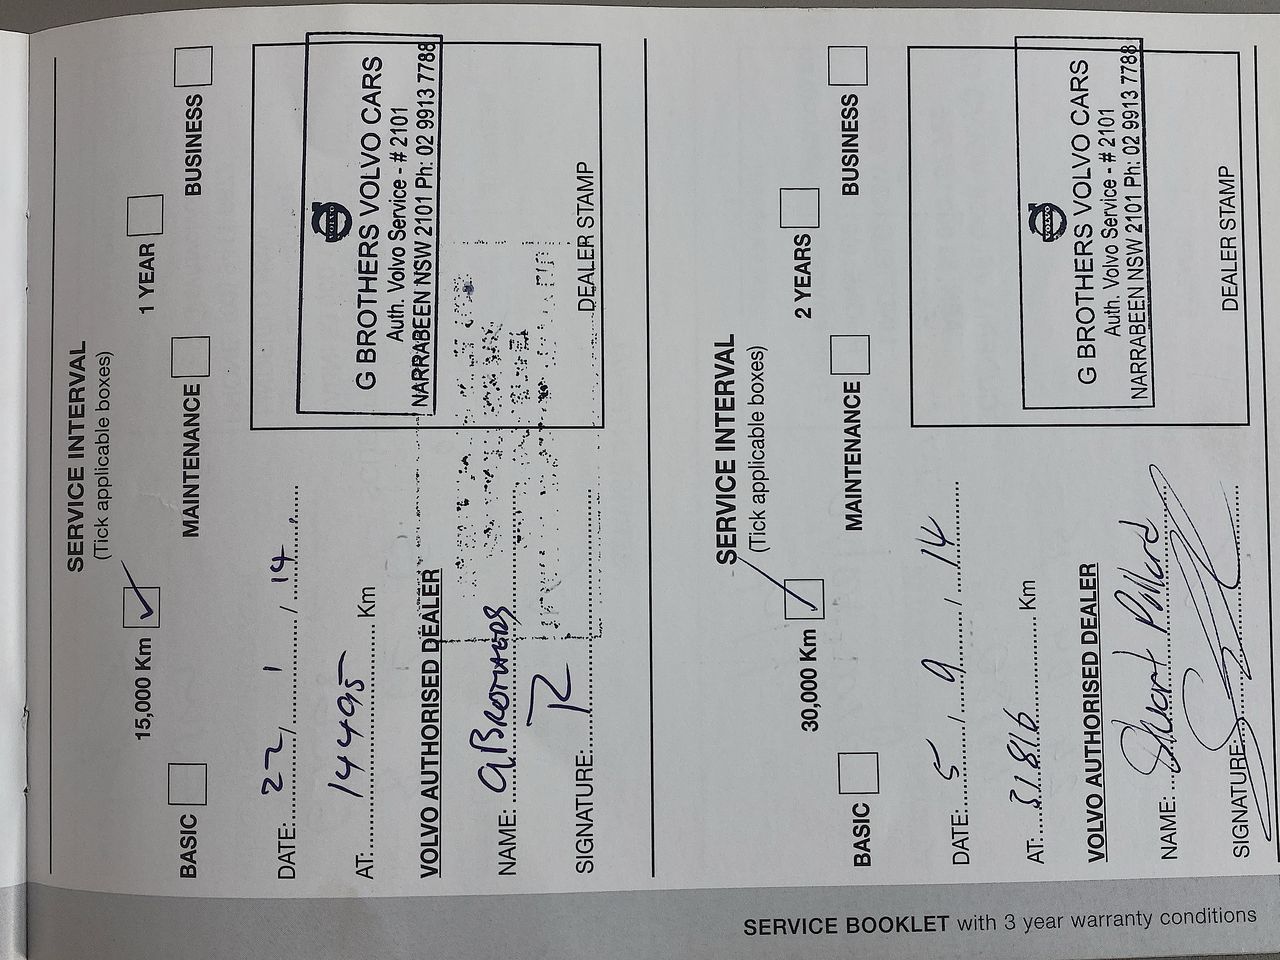 SERVICE INTERVAL
(Tick applicable boxes)
15,000 Km ✓ 1 YEAR
BASIC MAINTENANCE BUSINESS
DATE: 22 / 1 / 14
AT: 14495 Km
VOLVO AUTHORISED DEALER
NAME: G BROTHERS
SIGNATURE:
VOLVO
G BROTHERS VOLVO CARS
Auth. Volvo Service - # 2101
NARRABEEN NSW 2101 Ph: 02 9913 7788
DEALER STAMP
SERVICE INTERVAL
(Tick applicable boxes)
30,000 Km ✓ 2 YEARS
BASIC MAINTENANCE BUSINESS
DATE: 5 / 9 / 14
AT: 31816 Km
VOLVO AUTHORISED DEALER
NAME: Pollard
SIGNATURE:
VOLVO
G BROTHERS VOLVO CARS
Auth. Volvo Service - # 2101
NARRABEEN NSW 2101 Ph: 02 9913 7788
DEALER STAMP
SERVICE BOOKLET with 3 year warranty conditions